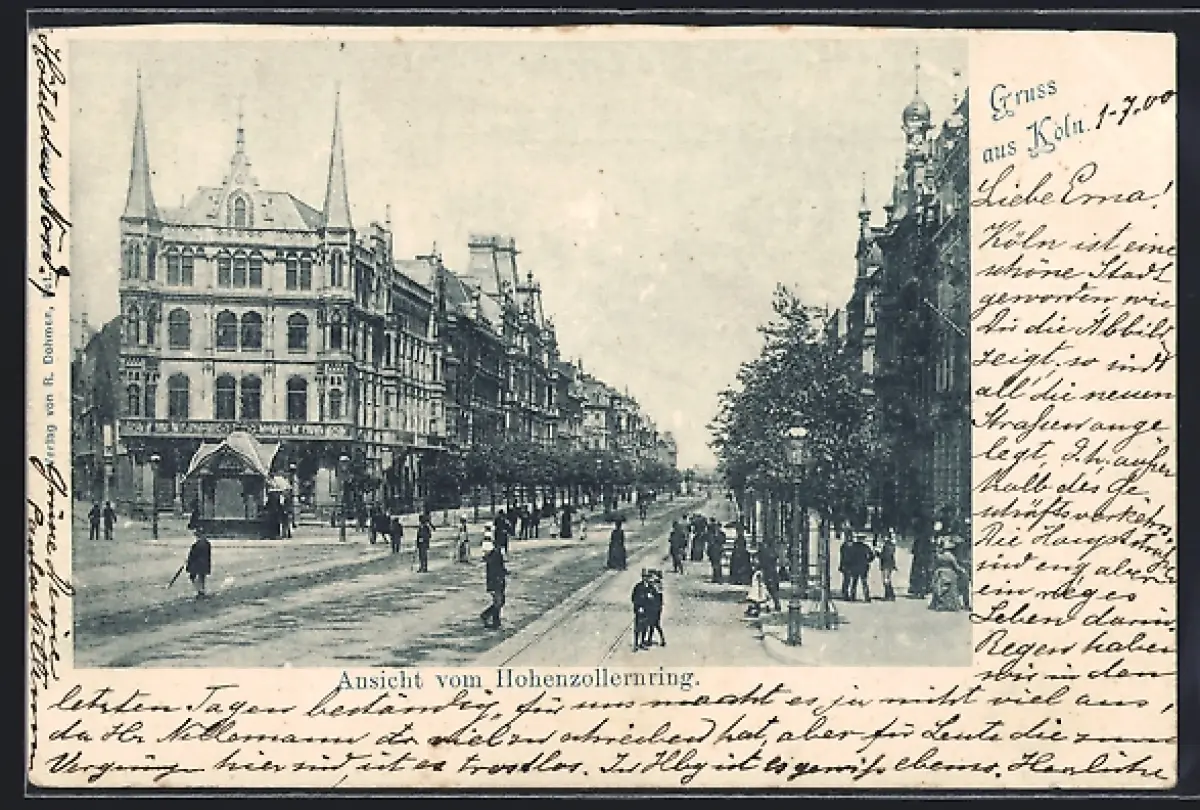 Gruss
aus Köln. 1-7.00
Liebe Erna!
Köln ist eine
schöne Stadt
geworden, wie
Du die Abbild
zeigt, so sind
all die neuen
Straßen ange
legt, I. h. außer
halb des Ge
schäftsverkehrs
Die Hauptstraß
sind eng aber
ein reges
Leben darin.
Regen haben
wir in den
letzten Tagen beständig, für uns macht es ja nicht viel aus,
da Hr. Nillemann dr. viel zu schreiben hat, aber für Leute die zum
Vergnüg hier sind, ist es trostlos. In Hbg ist es gewiß ebenso. Herzliche
Grüße Deine
Hotel du Nord
Verlag von R. Dohmer,
Ansicht vom Hohenzollernring.